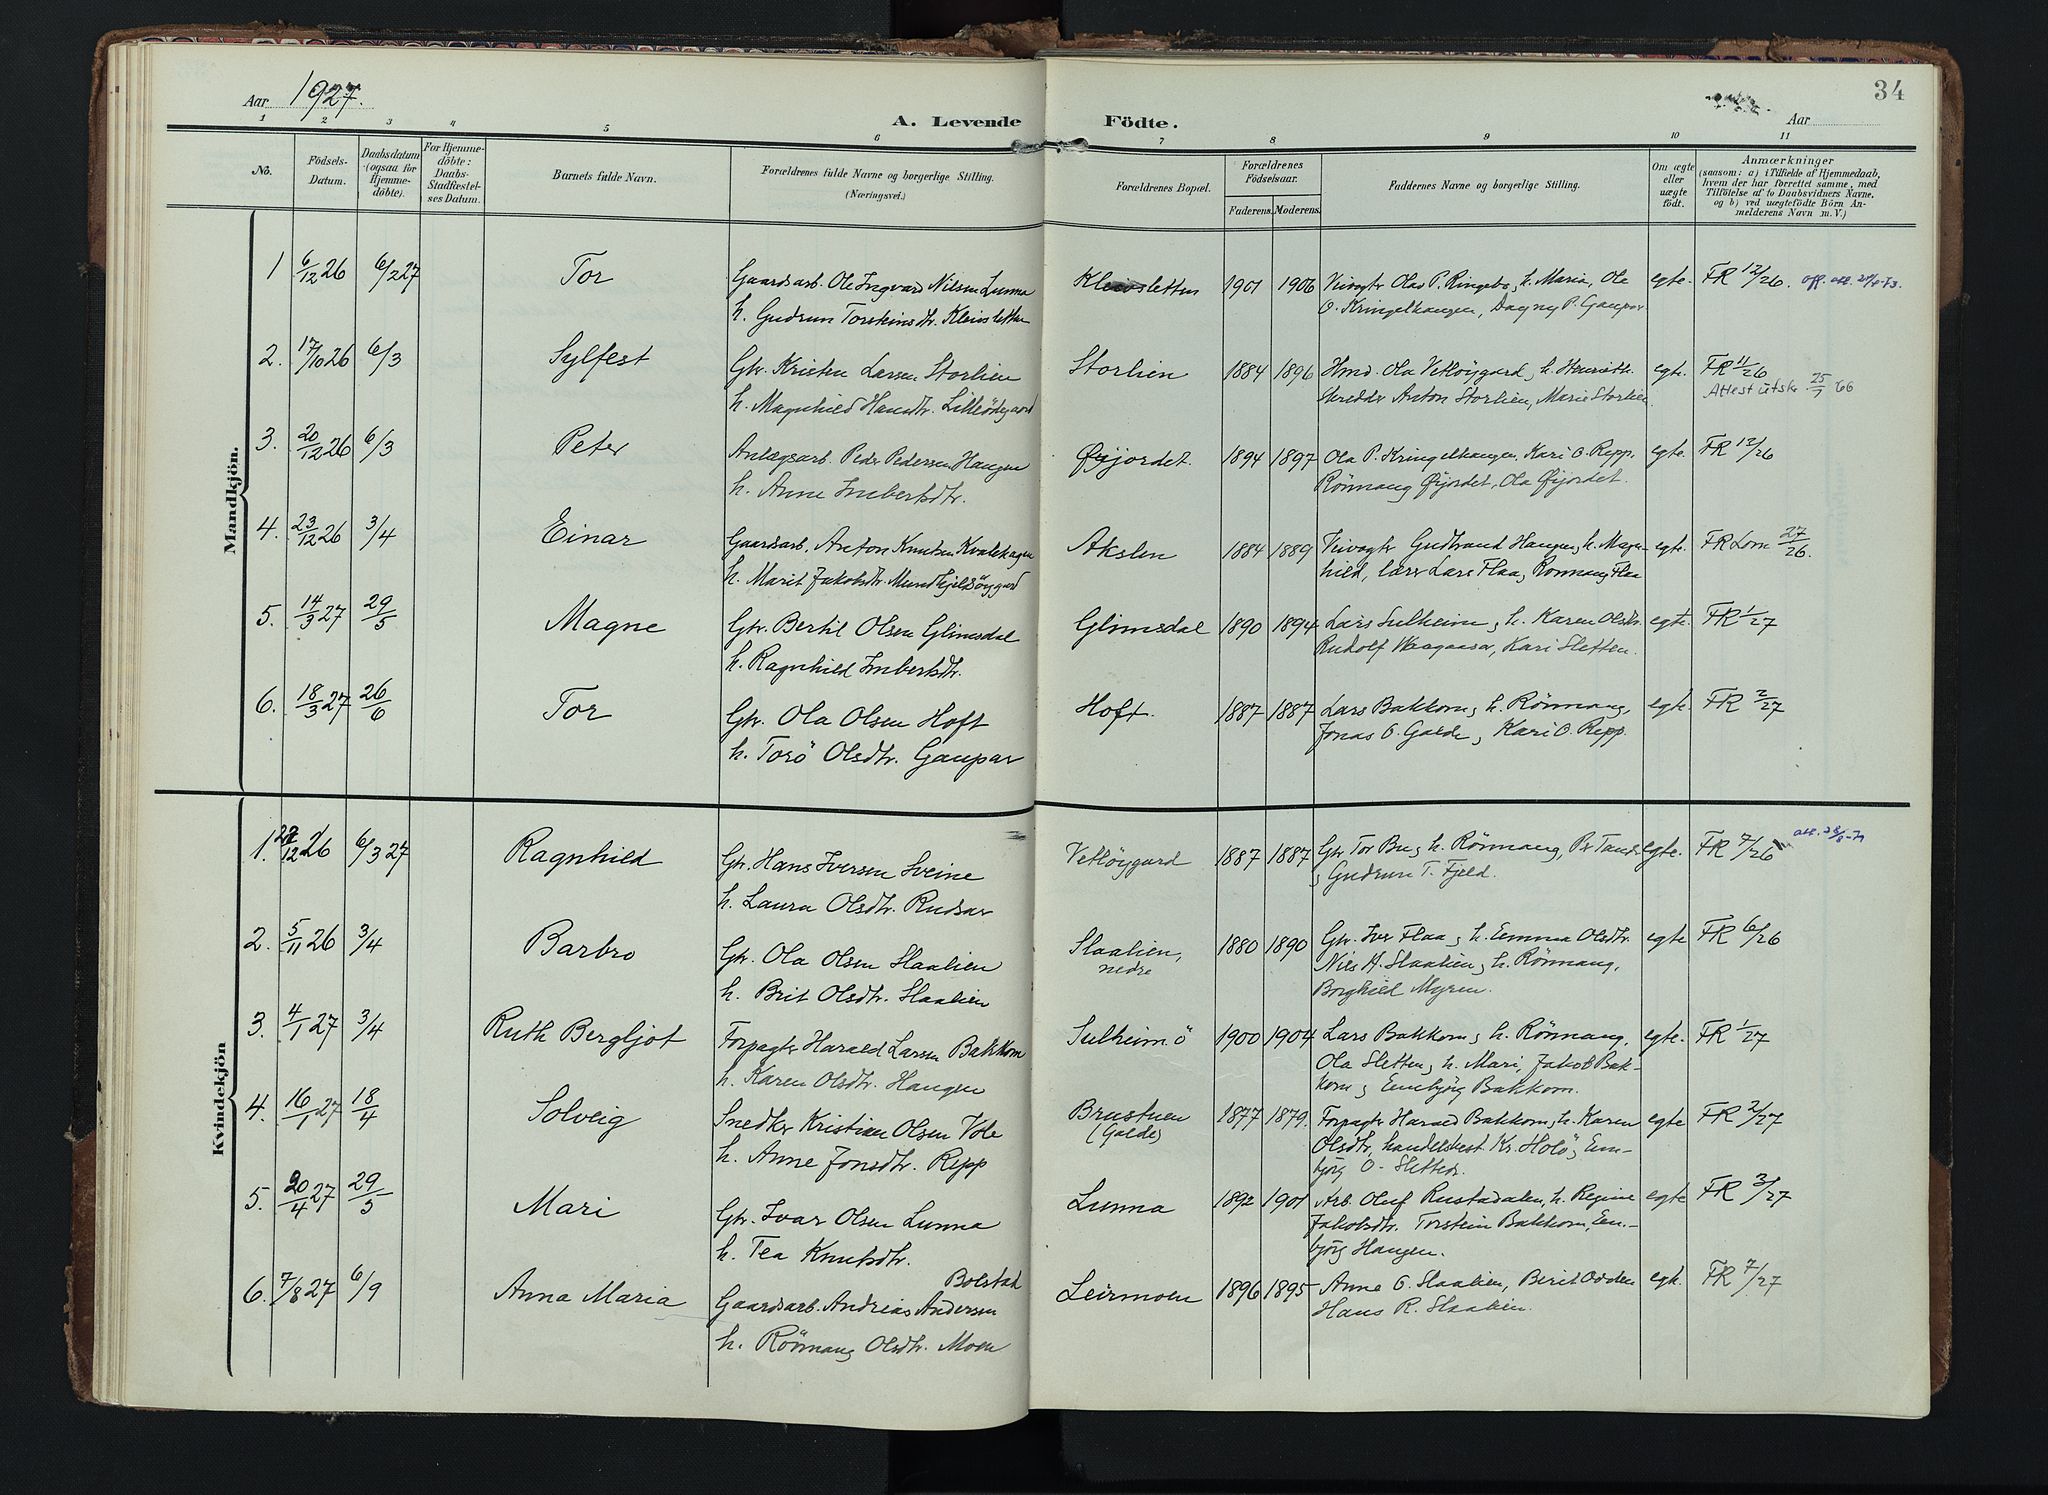 Aar 1927.
A. Levende Födte.
34
Aar
1 2 3 4 5 6 7 8 9 10 11
No.
Födsels-Datum.
Daabsdatum (ogsaa for Hjemme-döbte).
For Hjemme-döbte: Daabs-Stadfæstel-ses Datum.
Barnets fulde Navn.
Forældrenes fulde Navne og borgerlige Stilling.
(Næringsvei.)
Forældrenes Bopæl.
Forældrenes Födselsaar.
Faderens. Moderens.
Faddernes Navne og borgerlige Stilling.
Om ægte eller uægte födt.
Anmærkninger
(saasom: a) i Tilfælde af Hjemmedaab,
hvem der har forrettet samme, med
Tilföielse af to Daabsvidners Navne,
og b) ved uægtefödte Börn An-
melderens Navn m. V.)
Mandkjön.
1 6/12 26 6/2 27 Tor Gaardsarb. Ole Ingvard Nilsen Lunna Kleivsletten 1901 1906 Veivogter Olas P. Ringebo, h. Maria, Ole egte. FR 12/26.
h. Gudrun Torsteinsdtr. Kleivsletten O. Kringelhaugen, Dagny P. Gaupar
2. 17/10 26 6/3 Sylfest Gbr. Kristen Larsen Storlien Storlien 1884 1896 Hmd. Ola Vetlöygard, h. Henriette egte. FR 11/26
h. Magnhild Hansdtr. Lilleödegaard skredder Anton Storlien, Marie Storlien Attest utskr. 25/7 66
3. 20/12 26 6/3 Peter Anlægsarb. Peder Pedersen Haugen Øyjordet. 1894 1897 Ola P. Kringelhaugen, Kari O. Repp, egte. FR 12/26
h. Anne Imbertsdtr. Rönnaug Øijordet, Ola Øijordet.
4. 23/12 26 3/4 Einar Gaardsarb. Anton Knutsen Kvalehagen Akslen 1884 1889 Veivogter Gudbrand Haugen, h. Magn- egte. FR Lom 27/26.
h. Marit Jakobsdtr. Mundhjelsöygard hild, lærer Lars Flaa, Ronnaug Flaa
5. 14/3 27 29/5 Magne Gbr. Bertil Olsen Glimsdal Glimsdal 1890 1894 Lars Sulheim, h. Karen Olsdtr. egte. FR 1/27
h. Ragnhild Imbertsdtr. Rudolf Waagaasar, Kari Sletten.
6. 18/3 27 26/6 Tor Gbr. Ola Olsen Hoft Hoft. 1887 1887 Lars Bakkom, h. Rönnaug, egte. FR 2/27
h. Torö Olsdtr. Gaupar Jonas O. Galde, Kari O. Repp.
Kvindekjön
1. 12 26 6/3 27 Ragnhild Gbr. Hans Iversen Sveine Vetlöygard 1887 1887 Gbr Tor Bu, h. Rönnaug, Per Tande egte. FR 7/26
h. Laura Olsdtr. Rudsar Gudrun T. Fjeld.
2. 5/11 26 3/4 Barbro Gbr. Ola Olsen Slaalien Slaalien, 1880 1890 Gbr. Iver Flaa, h. Emma Olsdtr. egte FR 6/26
h. Brit Olsdtr. Slaalien nedre Nils H. Slaalien, h. Rönnaug,
Borghild Myren.
3. 4/1 27 3/4 Ruth Bergljot Forpagter Harald Larsen Bakkom Sulheimö 1900 1904 Lars Bakkom, h. Rönnaug, egte. FR 1/27
h. Karen Olsdtr. Haugen Ola Sletten, h. Mari, Jakob Bak-
kom, Embjörg Bakkom.
4. 16/1 27 18/4 Solveig Snedker Kristian Olsen Vole Brustuen 1877 1879. Forpagter Harald Bakkom, h. Karen egte FR 2/27
h. Anne Jonsdtr. Repp (Galde) Olsdtr, handelsbest. Kr. Holö, Em-
björg O. Sletten.
5. 20/4 27 29/5 Mari Gbr. Ivar Olsen Lunna Lunna 1892 1901 Arb. Oluf Rustadalen, h. Regine egte FR 3/27
h. Tea Knutsdtr. Jakobsdtr. Torstein Bakkom, Em-
björg Haugen.
Bolstad
6. 7/8 27 6/9 Anna Maria Gaardsarb. Andreas Andersen Leirmoen 1896 1895 Anne O. Slaalien, Birit Odden egte. FR 7/27
h. Rönnaug Olsdtr. Moen Hans R. Slaalien.